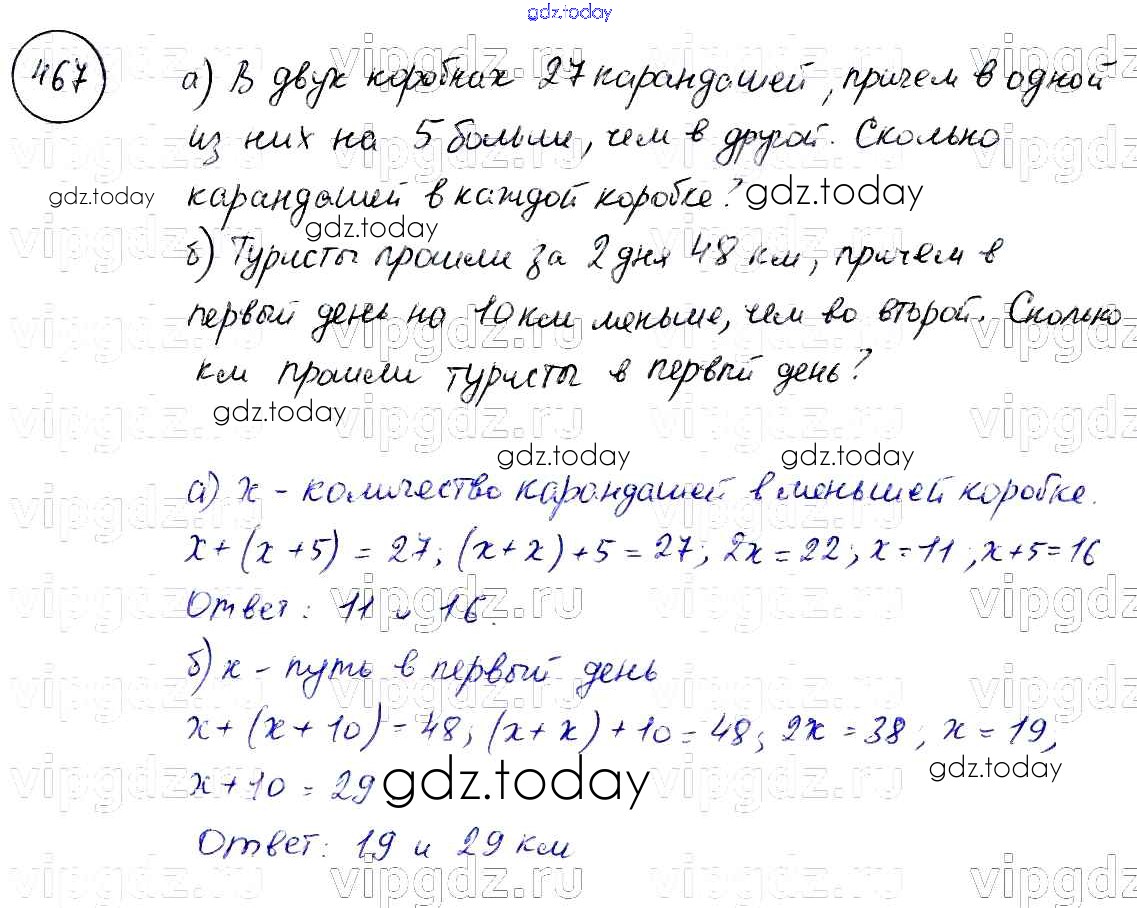 gdz.today
467
а) В двух коробках 27 карандашей, причем в одной
из них на 5 больше, чем в другой. Сколько
gdz.today карандашей в каждой коробке? gdz.today
gdz.today
б) Туристы прошли за 2 дня 48 км, причем в
первый день на 10 км меньше, чем во второй. Сколько
км прошли туристы в первый день?
gdz.today
gdz.today gdz.today
а) x - количество карандашей в меньшей коробке.
x + (x + 5) = 27; (x + x) + 5 = 27; 2x = 22; x = 11; x + 5 = 16
Ответ: 11 и 16.
б) x - путь в первый день
x + (x + 10) = 48; (x + x) + 10 = 48; 2x = 38; x = 19;
x + 10 = 29 gdz.today gdz.today
Ответ: 19 и 29 км
vipgdz.ru